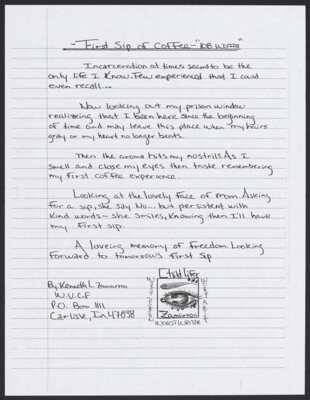 - First Sip of Coffee - "101 words"
Incarceration at times seems to be the
only life I Know. Few experienced that I could
even recall...
Now looking out my prison window
realizeing that I been here since the beginning
of time and may leave this place when my hairs
gray or my heart no longer beats.
Then the aroma hits my nostrils. As I
smell and close my eyes then taste remembering
my first coffee experience.
Looking at the lovely face of mom. Asking
for a sip, she say No... but persistent with
Kind words - she smiles, Knowing then I'll have
my first sip.
A loveing memory of freedom. Looking
forward to tomorrow's first sip
By, Kenneth L. Zamarron
W.V.C.F
P.O. Box 1111
Carlisle, In 47838
Child lifer
WRITTEN
Zamarron
WORSTWRITER